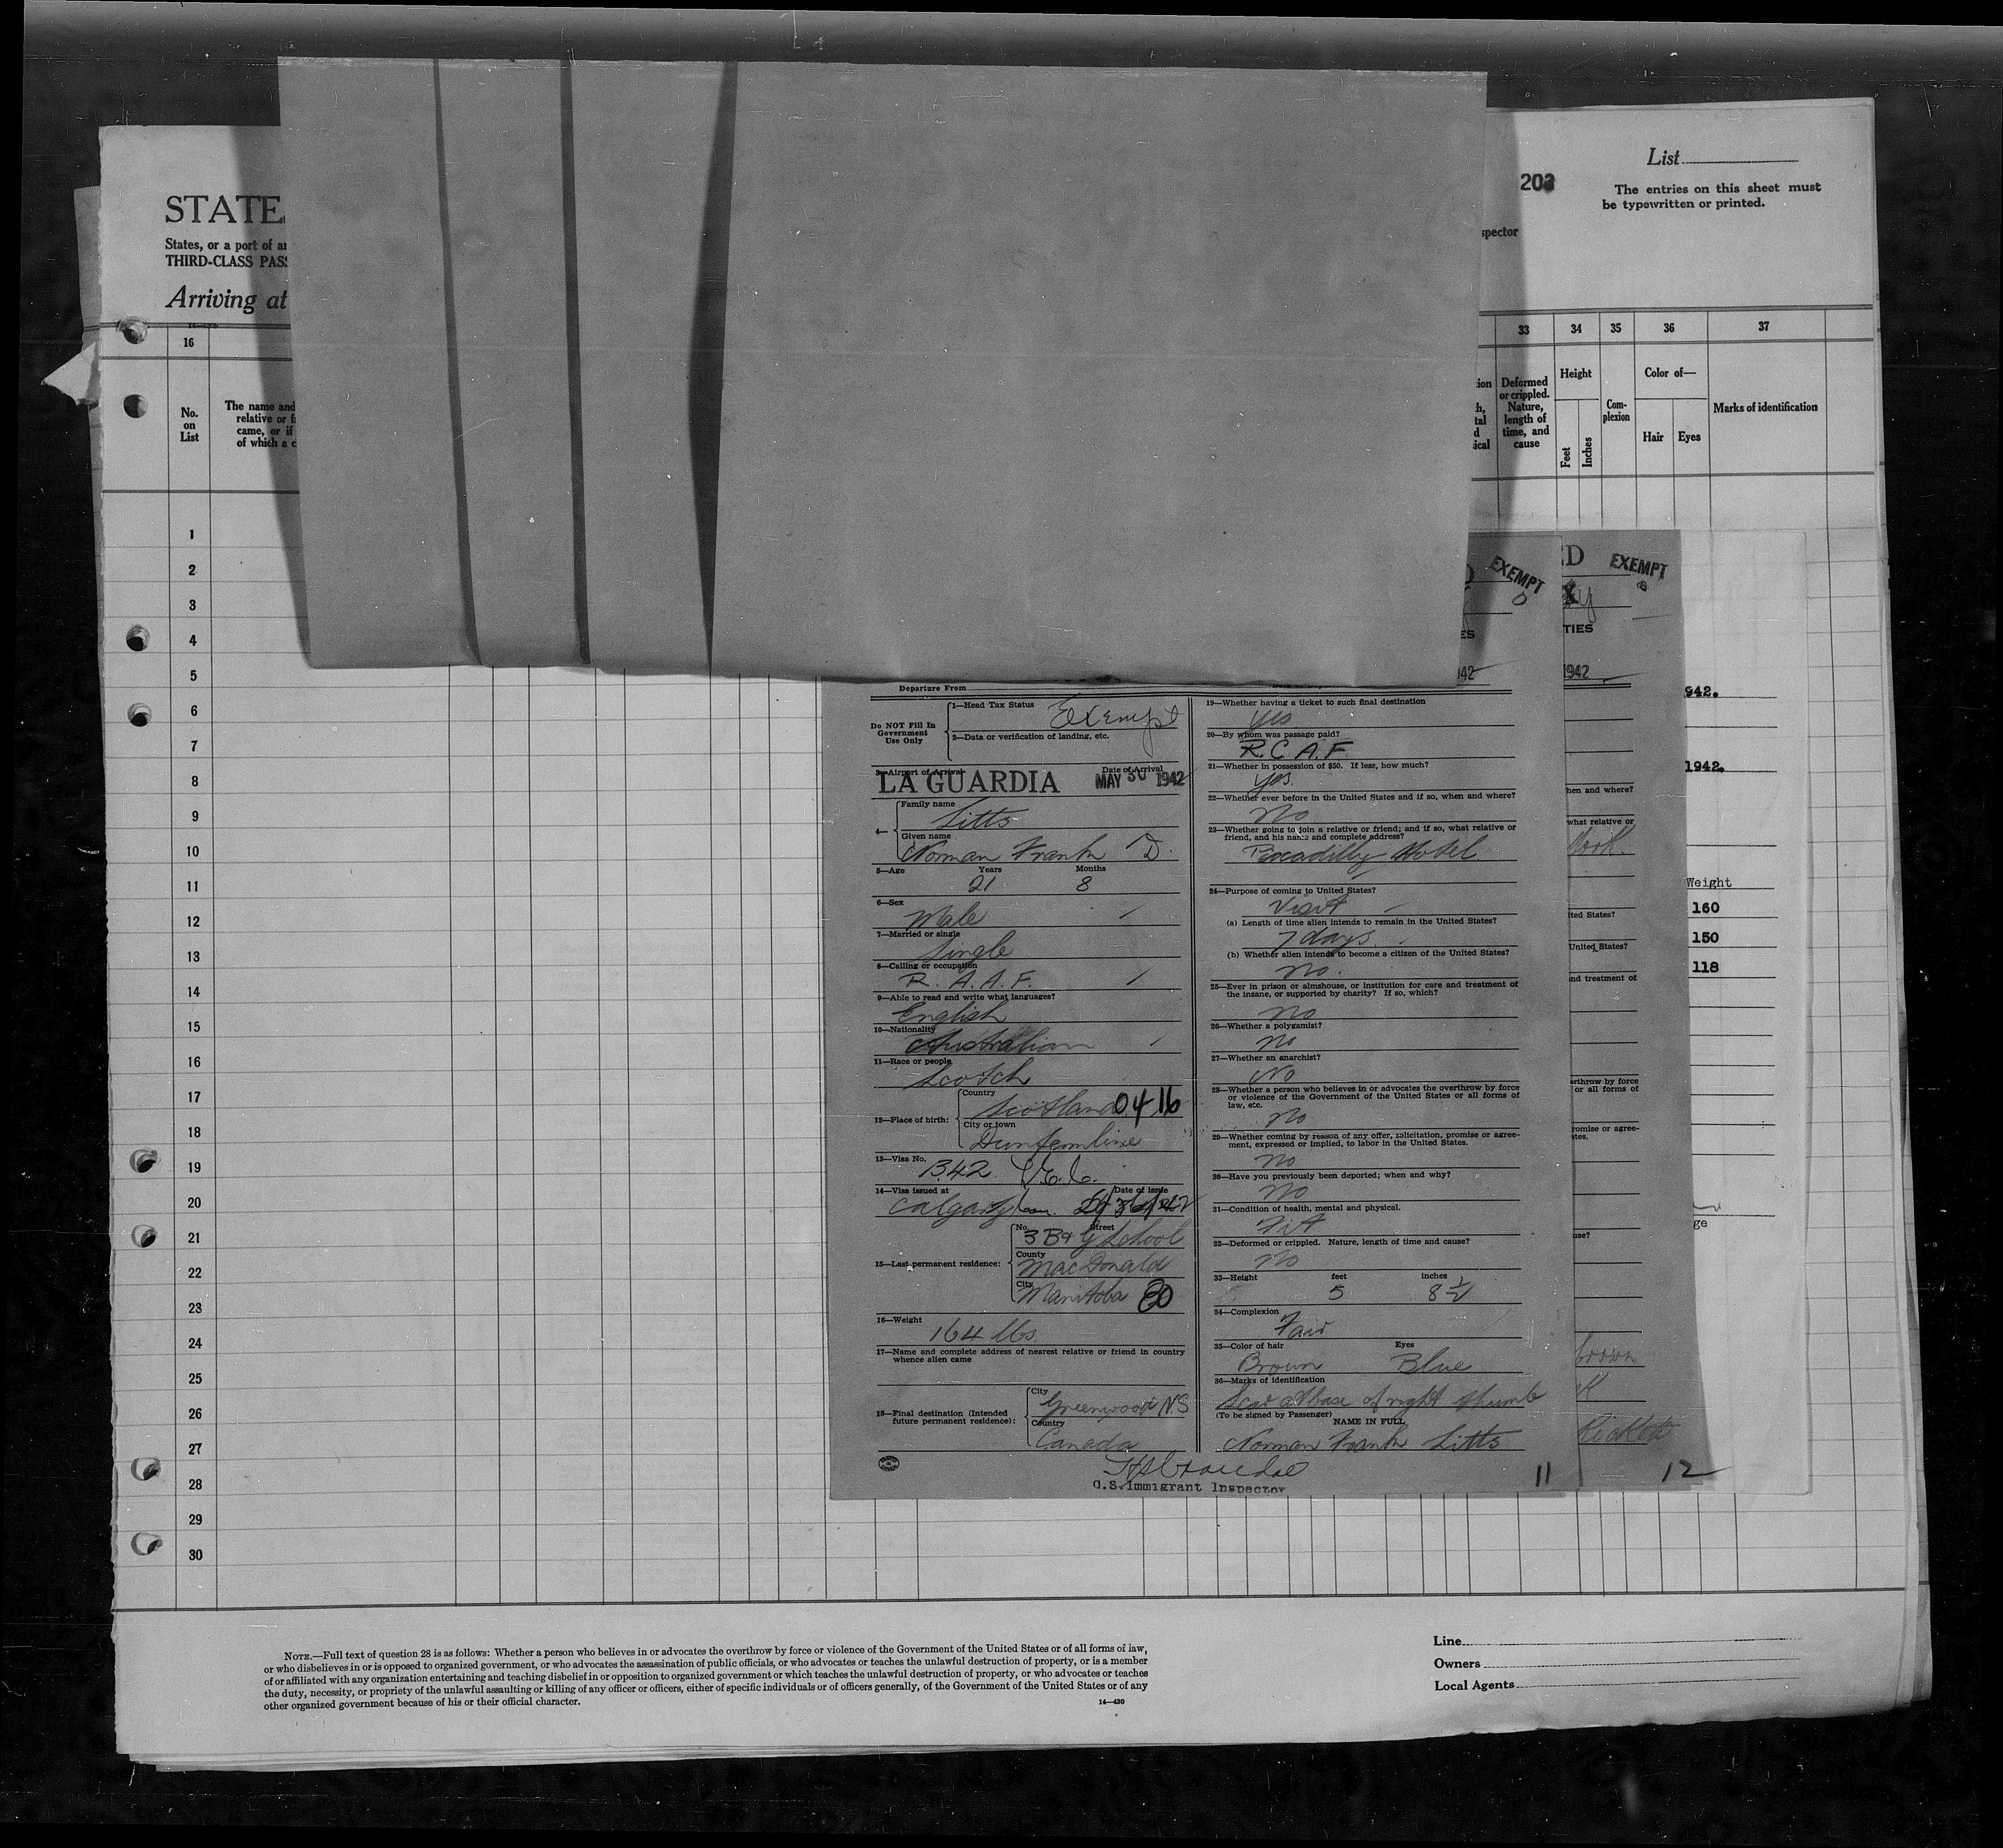 List
203
The entries on this sheet must
be typewritten or printed.
STATE
spector
States, or a port of
THIRD-CLASS PAS
Arriving at
16
33 34 35 36 37
No.
on
List
The name and
relative or
came, or if
of which a c
Deformed
or crippled.
Nature,
length of
time, and
cause
Height
Feet
Inches
Com-
plexion
Color of—
Hair Eyes
Marks of identification
1
2
3
4
5
6
7
8
9
10
11
12
13
14
15
16
17
18
19
20
21
22
23
24
25
26
27
28
29
30
EXEMPT
ED EXEMPT
TIES
1942
Departure From
Do NOT Fill In
Government
Use Only
1—Head Tax Status Exempt
2—Data or verification of landing, etc.
3—Airport of Arrival Date of Arrival
LA GUARDIA MAY 30 1942
4— Family name
Litts
Given name
Norman Frank D.
5—Age Years Months
21 8
6—Sex
Male
7—Married or single
Single
8—Calling or occupation
R. A. A. F.
9—Able to read and write what languages?
English
10—Nationality
Australian
11—Race or people
Scotch
12—Place of birth:
Country
Scotland 0416
City or town
Dunfermline
13—Visa No.
1342
14—Visa issued at Date of issue
Calgary Can.
15—Last permanent residence:
No. Street
3 B & G School
County
MacDonald
City
Manitoba
16—Weight
164 lbs.
17—Name and complete address of nearest relative or friend in country
whence alien came
18—Final destination (Intended
future permanent residence):
City
Greenwood N.S
Country
Canada
19—Whether having a ticket to such final destination
Yes
20—By whom was passage paid?
R.C.A.F.
21—Whether in possession of $50. If less, how much?
Yes.
22—Whether ever before in the United States and if so, when and where?
No
23—Whether going to join a relative or friend; and if so, what relative or
friend, and his name and complete address?
Piccadilly Hotel
24—Purpose of coming to United States?
Visit
(a) Length of time alien intends to remain in the United States?
7 days.
(b) Whether alien intends to become a citizen of the United States?
No.
25—Ever in prison or almshouse, or institution for care and treatment of
the insane, or supported by charity? If so, which?
No
26—Whether a polygamist?
No
27—Whether an anarchist?
No
28—Whether a person who believes in or advocates the overthrow by force
or violence of the Government of the United States or all forms of
law, etc.
No
29—Whether coming by reason of any offer, solicitation, promise or agree-
ment, expressed or implied, to labor in the United States.
No
30—Have you previously been deported; when and why?
No
31—Condition of health, mental and physical.
Fit
32—Deformed or crippled. Nature, length of time and cause?
No
33—Height feet inches
5 8½
34—Complexion
Fair
35—Color of hair Eyes
Brown Blue
36—Marks of identification
Scar at base of right thumb
(To be signed by Passenger)
NAME IN FULL
Norman Frank Litts
U.S. Immigrant Inspector
11
12
942.
1942.
hen and where?
what relative or
York.
Weight
160
150
118
ited States?
United States?
nd treatment of
erthrow by force
or all forms of
romise or agree-
ates.
use?
brown
Rickets
NOTE.—Full text of question 28 is as follows: Whether a person who believes in or advocates the overthrow by force or violence of the Government of the United States or of all forms of law,
or who disbelieves in or is opposed to organized government, or who advocates the assassination of public officials, or who advocates or teaches the unlawful destruction of property, or is a member
of or affiliated with any organization entertaining and teaching disbelief in or opposition to organized government or which teaches the unlawful destruction of property, or who advocates or teaches
the duty, necessity, or propriety of the unlawful assaulting or killing of any officer or officers, either of specific individuals or of officers generally, of the Government of the United States or of any
other organized government because of his or their official character.
14—430
Line
Owners
Local Agents